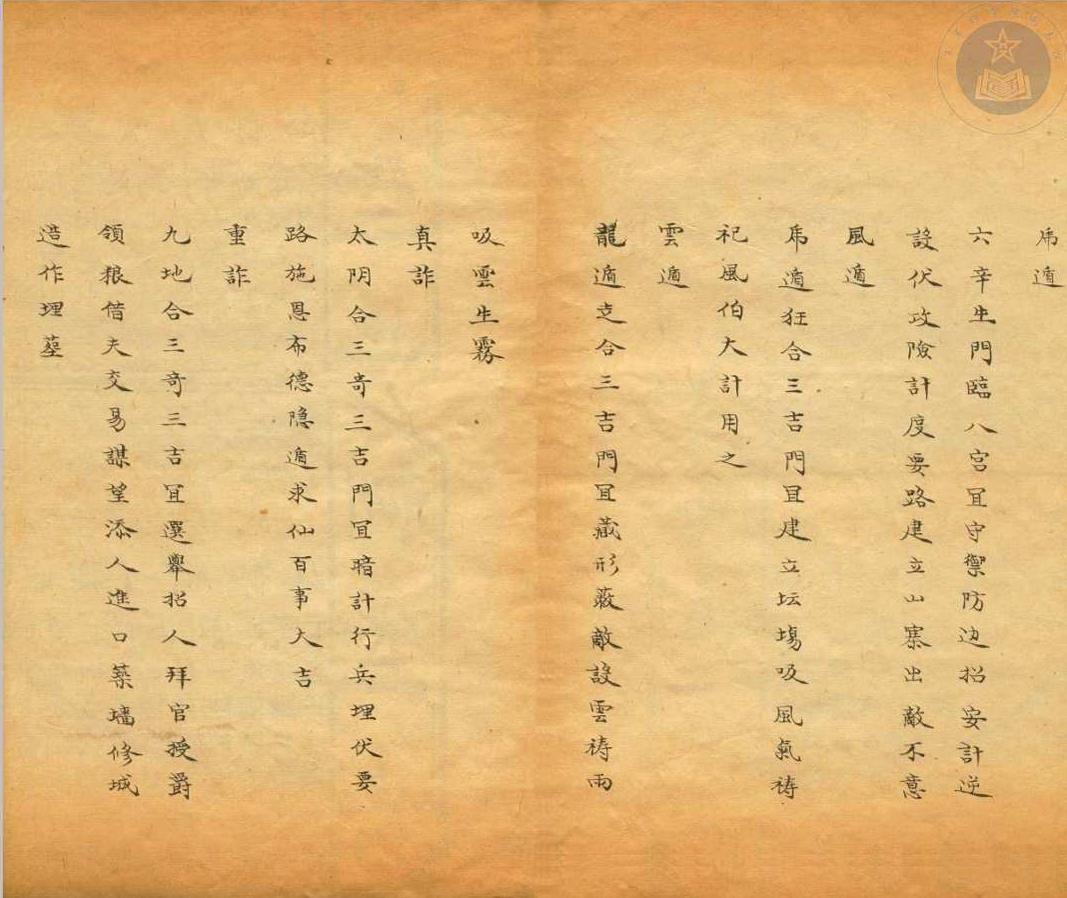 虎遁
六辛生門臨八宮宜守禦防边招安計逆
設伏攻險計度要路建立山寨出敵不意
風遁
虎遁狂合三吉門宜建立坛場吸風氣祷
祀風伯大計用之
雲遁
龍遁走合三吉門宜藏形蔽敵設雲祷雨
吸雲生霧
真詐
太阴合三奇三吉門宜暗計行兵埋伏要
路施恩布德隐遁求仙百事大吉
重詐
九地合三奇三吉宜選舉招人拜官授爵
領粮借夫交易謀望添人進口築墻修城
造作埋墓